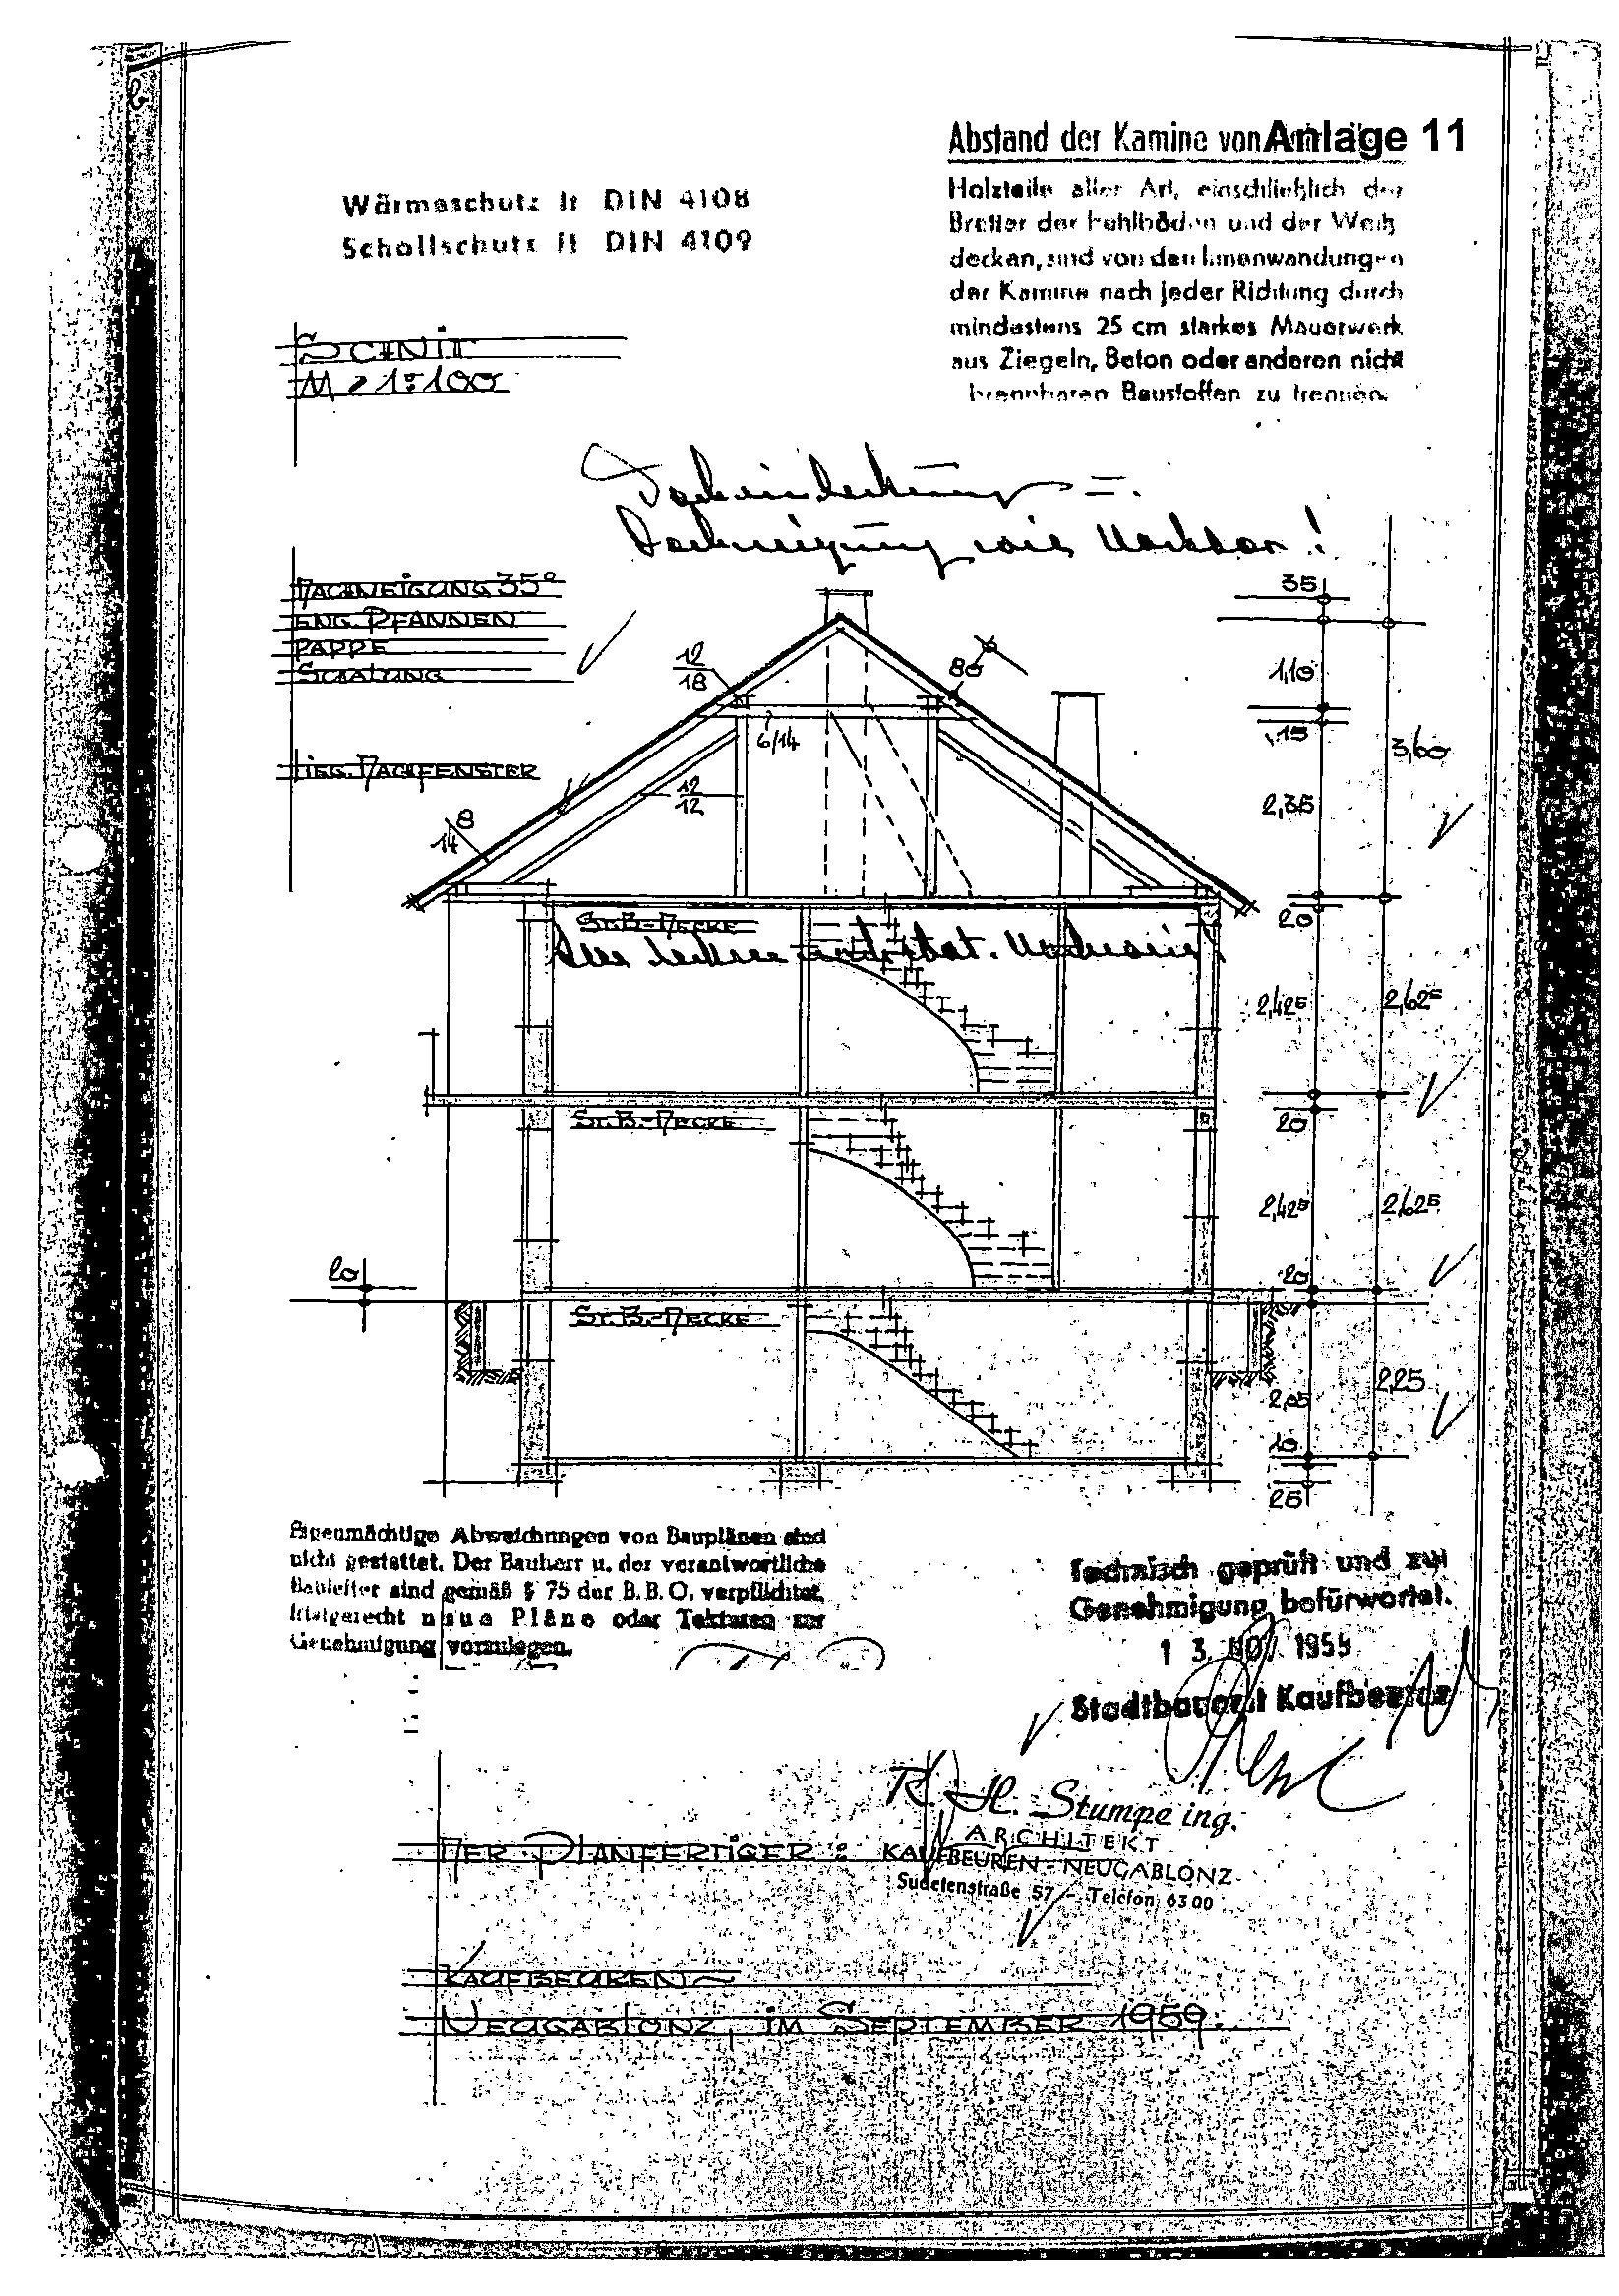 Abstand der Kamine von Anlage 11
Holzteile aller Art, einschließlich der
Bretter der Fehlböden und der Weiß
decken, sind von den Innenwandungen
der Kamine nach jeder Richtung durch
mindestens 25 cm starkes Mauerwerk
aus Ziegeln, Beton oder anderen nicht
brennbaren Baustoffen zu trennen.
Wärmeschutz lt DIN 4108
Schallschutz lt DIN 4109
SCHNIT
M = 1:100
Dacheindeckung =
Dachneigung wie Nachbar!
DACHNEIGUNG 35°
ENG. PFANNEN
PAPPE
SCHALUNG
LIEG. DACHFENSTER
12
18
80
6/14
12
12
8
14
35
1,10
15
3,60
2,35
20
ST.B.-DECKE
Alle Decken
2,42⁵
2,62⁵
ST.B.-DECKE
20
2,42⁵
2,62⁵
20
20
ST.B.-DECKE
2,05
2,25
10
25
Eigenmächtige Abweichungen von Bauplänen sind
nicht gestattet. Der Bauherr u. der verantwortliche
Bauleiter sind gemäß § 75 der B.B.O. verpflichtet,
fristgerecht neue Pläne oder Tekturen zur
Genehmigung vorzulegen.
Technisch geprüft und zur
Genehmigung befürwortet.
13. NOV. 1959
Stadtbauamt Kaufbeuren
DER PLANFERTIGER:
R. H. Stumpe ing.
ARCHITEKT
KAUFBEUREN - NEUGABLONZ
Sudetenstraße 57 - Telefon 6300
KAUFBEUREN-
NEUGABLONZ, IM SEPTEMBER 1959.